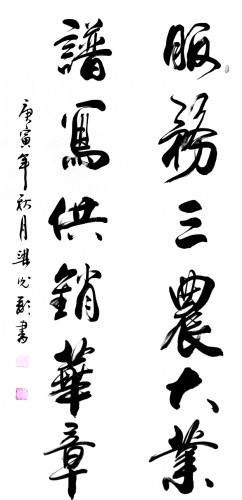 服務三農大業
譜寫供銷華章
庚寅年秋月梁光彭書